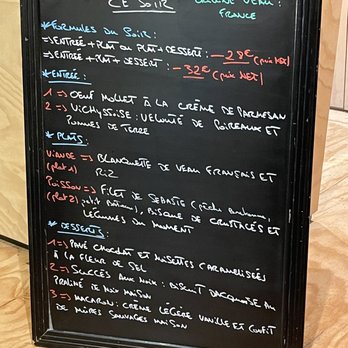 CE SOIR
ORIGINE VEAU :
FRANCE
* FORMULES DU SOIR:
=> ENTRÉE + PLAT OU PLAT + DESSERT : - 28€ (prix NET)
=> ENTRÉE + PLAT + DESSERT : - 32€ (prix NET)
* ENTRÉE:
1 => OEUF MOLLET À LA CRÈME DE PARMESAN
2 => VICHYSSOISE : VELOUTÉ DE POIREAUX ET
POMMES DE TERRE
* PLATS:
VIANDE => BLANQUETTE DE VEAU FRANÇAIS ET
(plat 1) RIZ
POISSON => FILET DE SEBASTE (pêche
(plat 2) BISQUE DE CRUSTACÉS ET
LÉGUMES DU MOMENT
* DESSERTS:
1 => PAVÉ CHOCOLAT ET NOISETTES CARAMELISÉES
À LA FLEUR DE SEL
2 => SUCCÈS AUX NOIX : BISCUIT DACQUOISE AU
PRALINÉ DE NOIX MAISON
3 => MACARON : CRÈME LÉGÈRE VANILLE ET CONFIT
DE MÛRES SAUVAGES MAISON